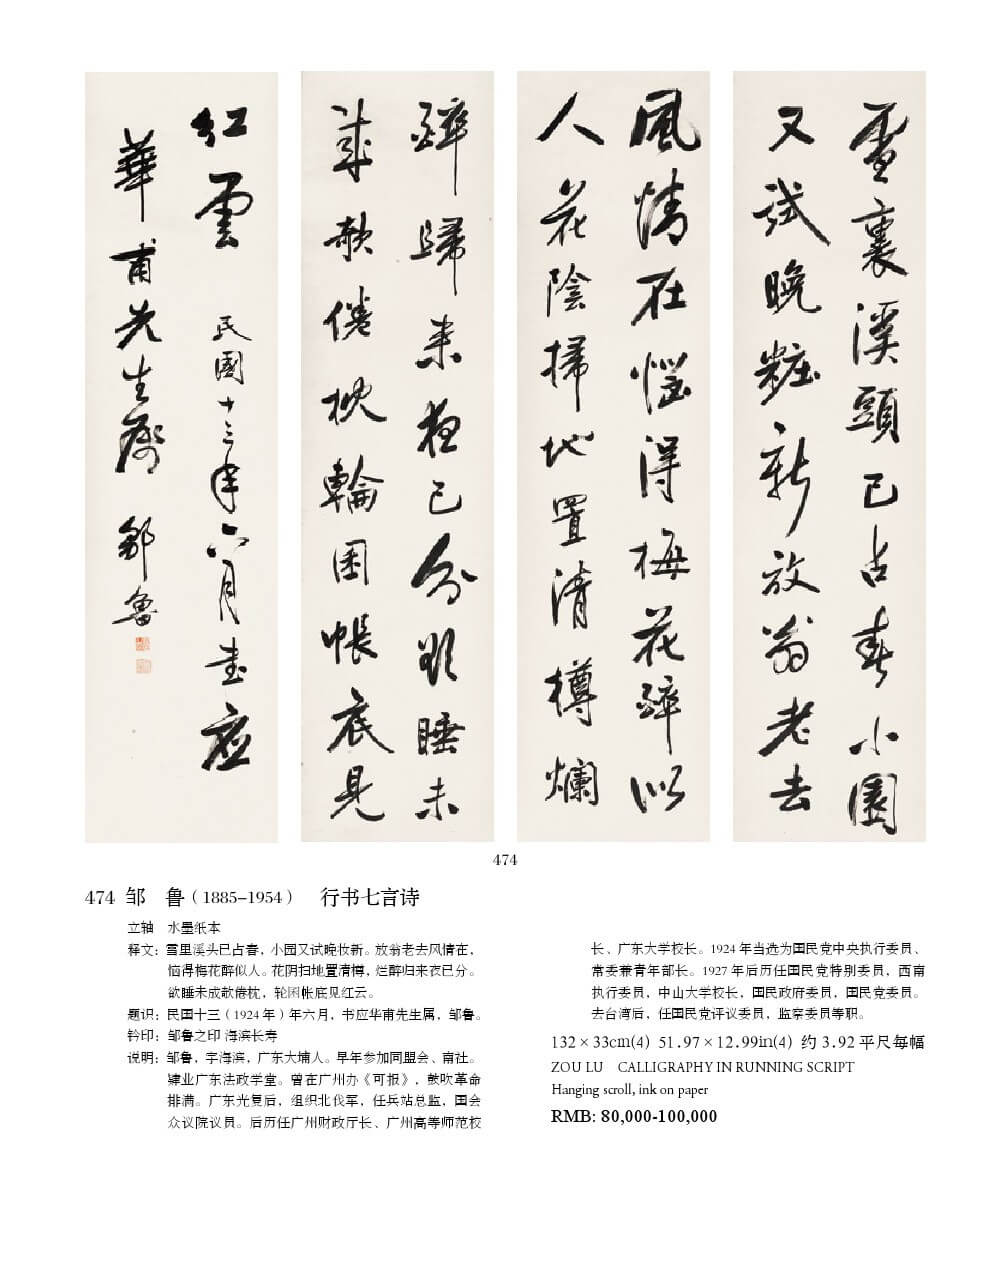 雪裏溪頭已占春小園
又試晚粧新放翁老去
風情在惱得梅花醉似
人花陰掃地置清樽爛
醉歸來夜已分欲睡未
成欹倦枕輪囷帳底見
紅雲
民國十三年六月書應
華甫先生屬 鄒魯
474
474 邹　鲁（1885–1954）　行书七言诗
立轴　水墨纸本
释文：雪里溪头已占春，小园又试晚妆新。放翁老去风情在，
恼得梅花醉似人。花阴扫地置清樽，烂醉归来夜已分。
欲睡未成欹倦枕，轮囷帐底见红云。
题识：民国十三（1924 年）年六月，书应华甫先生属，邹鲁。
钤印：邹鲁之印 海滨长寿
说明：邹鲁，字海滨，广东大埔人。早年参加同盟会、南社。
肄业广东法政学堂。曾在广州办《可报》，鼓吹革命
排满。广东光复后，组织北伐军，任兵站总监，国会
众议院议员。后历任广州财政厅长、广州高等师范校
长、广东大学校长。1924 年当选为国民党中央执行委员、
常委兼青年部长。1927 年后历任国民党特别委员，西南
执行委员，中山大学校长，国民政府委员，国民党委员。
去台湾后，任国民党评议委员，监察委员等职。
132 × 33cm(4) 51.97 × 12.99in(4) 约 3.92 平尺每幅
ZOU LU CALLIGRAPHY IN RUNNING SCRIPT
Hanging scroll, ink on paper
RMB: 80,000-100,000